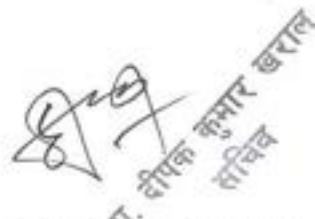 दीपक कुमार खराल
सचिव